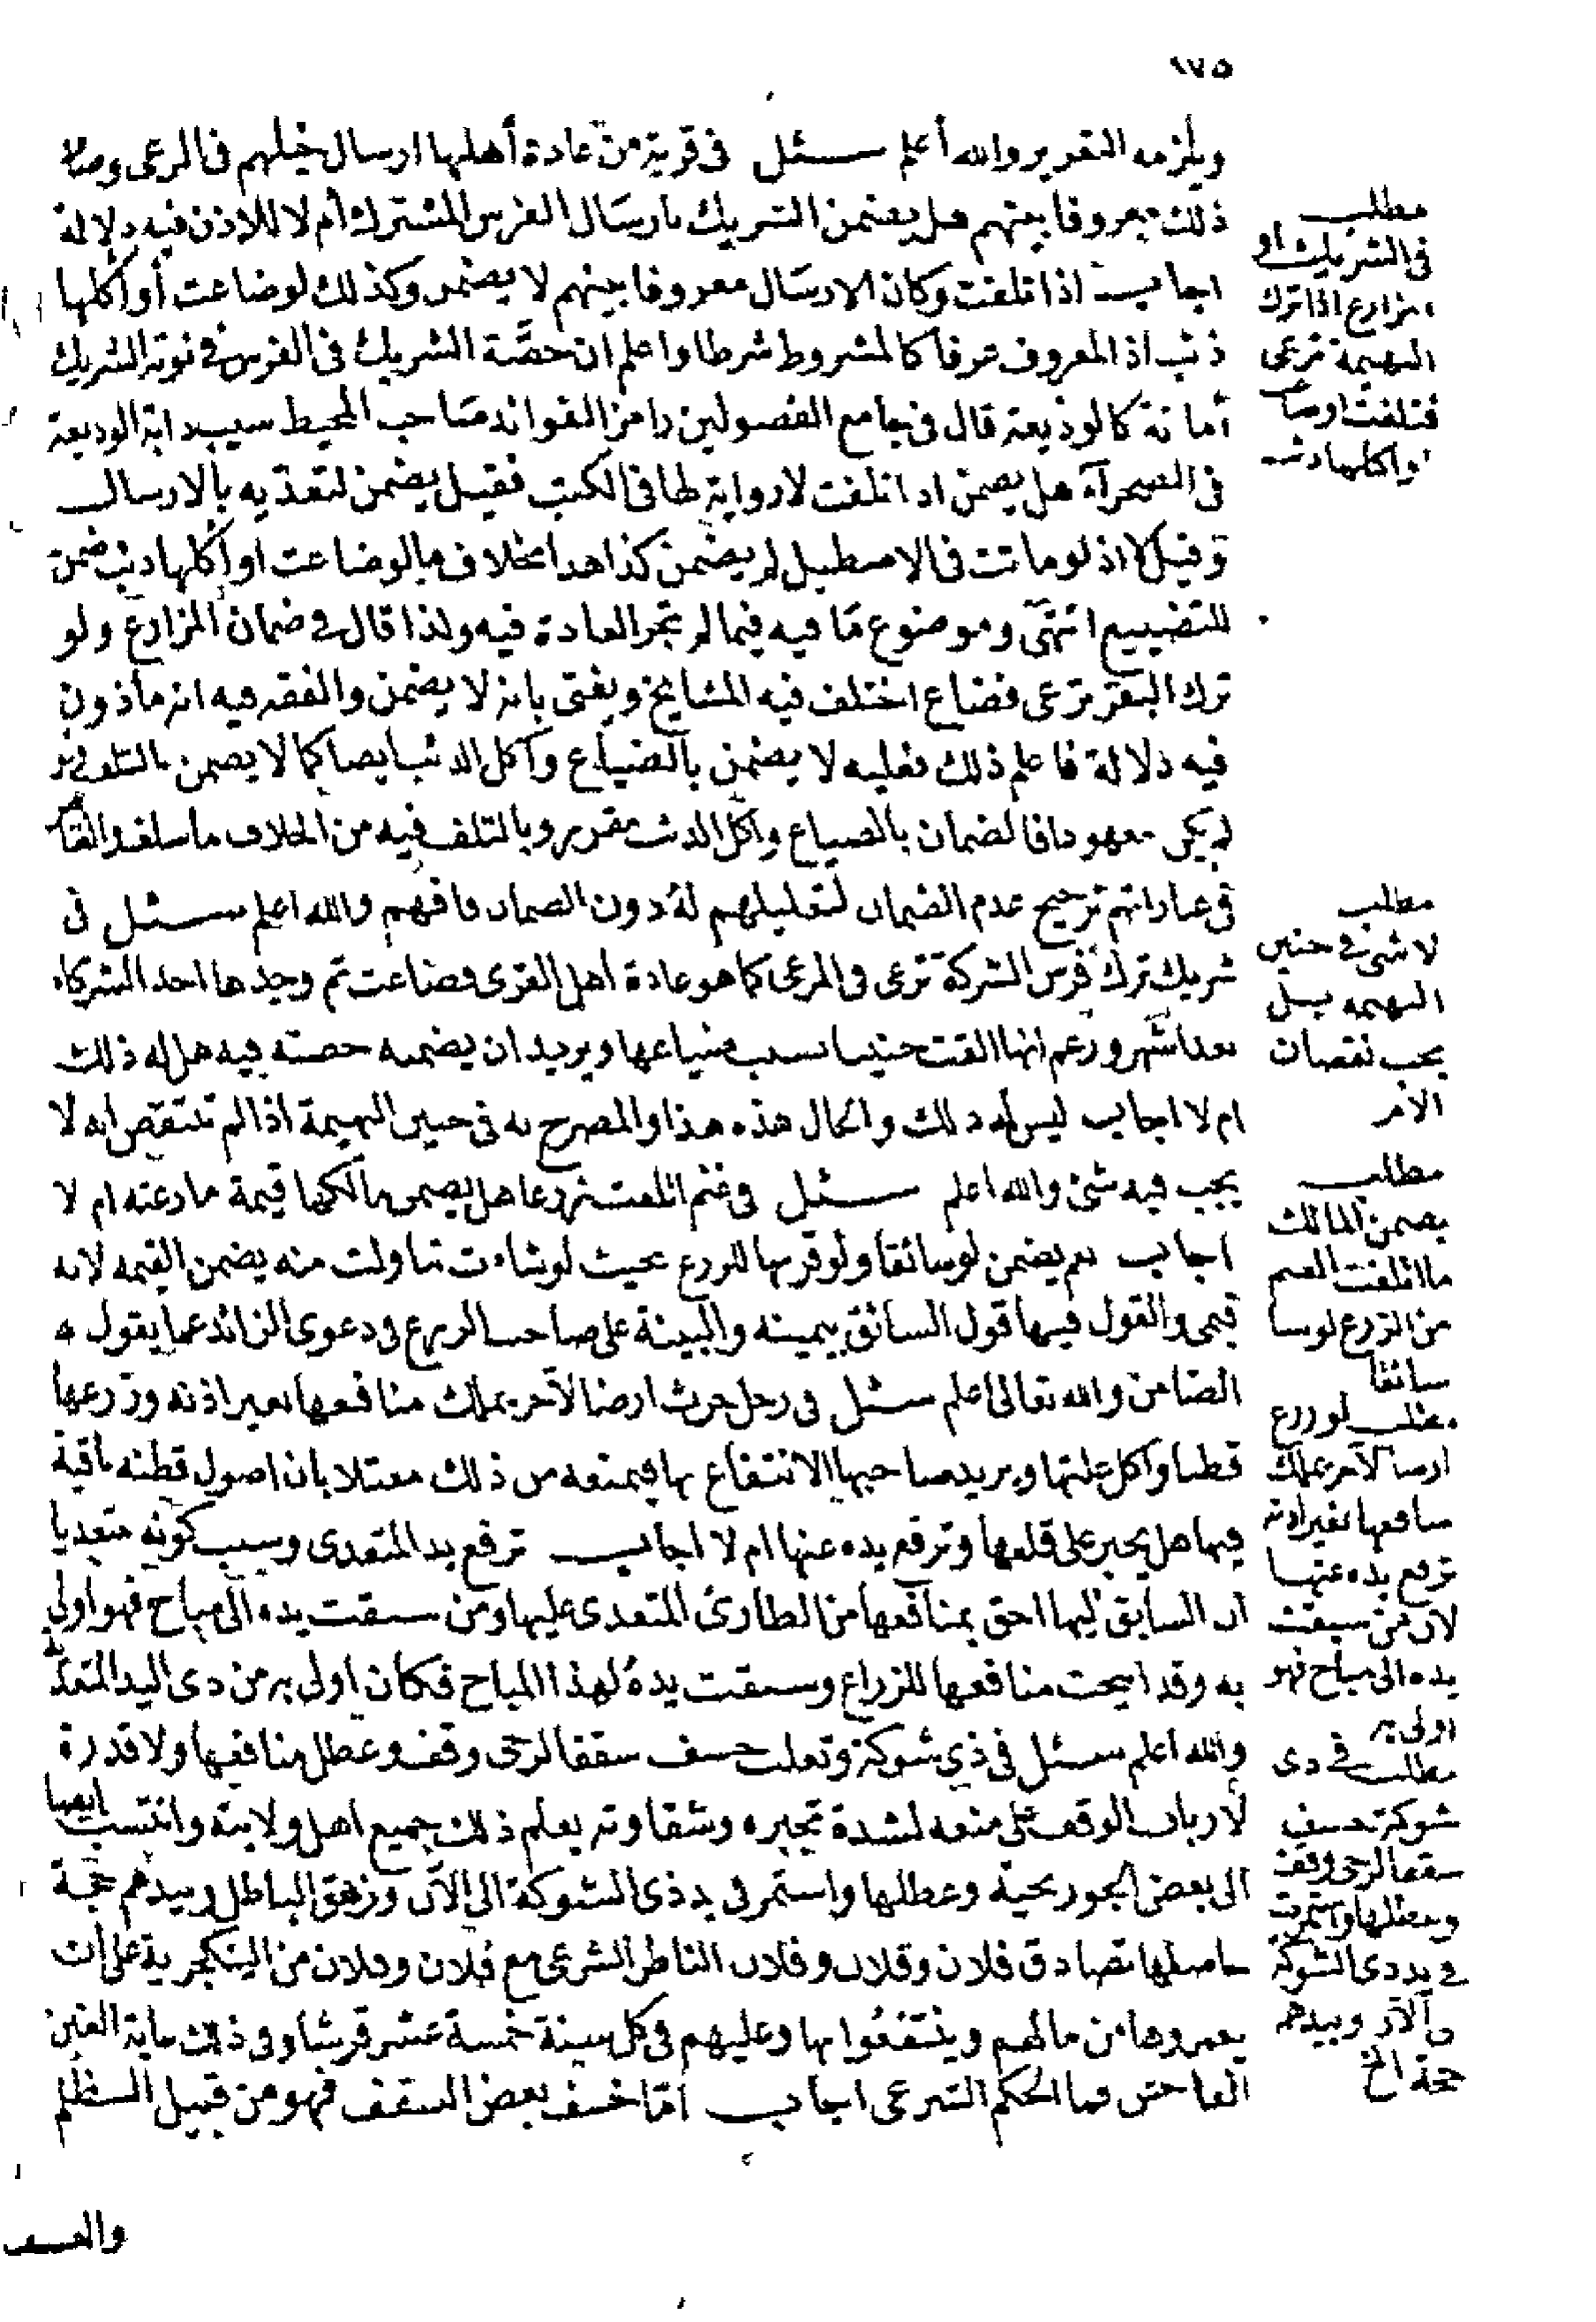 ١٧٥
ويلزمه التعزير والله أعلم سئل في قرية من عادة أهلها ارسال خيلهم في المرعى وصار
ذلك معروفا بينهم هل يضمن الشريك بارسال الفرس المشترك أم لا للاذن فيه دلالة
اجاب اذا تلفت وكان الارسال معروفا بينهم لا يضمن وكذلك لو ضاعت أو أكلها
ذئب اذ المعروف عرفا كالمشروط شرطا واعلم ان حصة الشريك في الفرس في نوبة الشريك
أمانة كالوديعة قال في جامع الفصولين رامز الفوائد صاحب المحيط سيب دابة الوديعة
في الصحرآء هل يضمن اذا تلفت لا رواية لها في الكتب فقيل يضمن لتعديه بالارسال
وقيل لا اذ لو ماتت في الاصطبل لم يضمن كذا هذا بخلاف ما لو ضاعت او اكلها ذئب ضمن
للتضييع انتهى وموضوع ما فيه فيما لم تجر العادة فيه ولذا قال في ضمان المزارع ولو
ترك البقر ترعى فضاع اختلف فيه المشايخ ويفتى بانه لا يضمن والفقه فيه انه ماذون
فيه دلالة فاعلم ذلك فعليه لا يضمن بالضياع وأكل الذئب ايضا كما لا يضمن بالتلف
لم يكن معهودا فالضمان بالضياع وأكل الذئب مقرر وبالتلف فيه من الخلاف ما سلف
في عباراتهم ترجيح عدم الضمان لتعليلهم له دون الضمان فافهم والله اعلم سئل في
شريك ترك فرس الشركة ترعى في المرعى كما هو عادة اهل القرى فضاعت ثم وجدها احد الشركاء
بعد اشهر وزعم انها القت جنينا بسبب ضياعها ويريد ان يضمنه حصته فيه هل له ذلك
ام لا اجاب ليس له ذلك والحال هذه هذا والمصرح به في جنين البهيمة اذا لم تنتقص انه لا
يجب فيه شئ والله اعلم سئل في غنم اتلفت زرعا هل يضمن مالكها قيمة ما رعته ام لا
اجاب نعم يضمن لو سائقا ولو قربها للزرع بحيث لو شاءت تناولت منه يضمن القيمة لانه
قيمي والقول فيها قول السائق بيمينه والبينة على صاحب الزرع في دعوى الزائد عما يقول
الضامن والله تعالى اعلم سئل في رجل حرث ارضا لآخر يملك منافعها بغير اذنه وزرعها
قطنا واكل غلتها ويريد صاحبها الانتفاع بها فيمنعه من ذلك معتلا بان اصول قطنه باقية
فيها هل يجبر على قلعها وترفع يده عنها ام لا اجاب ترفع يد المتعدى وسبب كونه متعديا
ان السابق ليها احق بمنافعها من الطارئ المتعدى عليها ومن سبقت يده الى مباح فهو اولى
به وقد ابيحت منافعها للزراع وسبقت يده لهذا المباح فكان اولى به من ذى اليد المتعد
والله اعلم سئل في ذي شوكة وتغلب خسف سقفا لرحى وقف وعطل منافعها ولا قدرة
لأرباب الوقف على منعه لشدة تجبره وشقاوته يعلم ذلك جميع اهل ولايته وانتسب ايضا
الى بعض الجوربجية وعطلها واستمر في يد ذى الشوكة الى الآن وزهق الباطل وبيدهم حجة
حاصلها تصادق فلان وفلان وفلان الناظر الشرعى مع فلان وفلان من الينكجرية على ان
يعمروها من مالهم وينتفعوا بها وعليهم في كل سنة خمسة عشر قرشا وفي ذلك غاية الغبن
الفاحش فما الحكم الشرعى اجاب أما خسف بعض السقف فهو من قبيل الظلم
والعسف
مطلب
في الشريك او
مزارع اذا ترك
البهيمة ترعى
فتلفت او ضاعت
او اكلها ذئب
مطلب
لا شئ في جنين
البهيمة بل
يجب نقصان
الام
مطلب
يضمن المالك
ما اتلفت الغنم
من الزرع لو سا
سائقا
مطلب لو زرع
ارضا لآخر يملك
منافعها بغير اذنه
ترفع يده عنها
لان من سبقت
يده الى مباح فهو
اولى به
مطلب في ذى
شوكة خسف
سقفا لرحى وقف
وعطلها واستمرت
في يد ذى الشوكة
الآن وبيدهم
حجة الخ